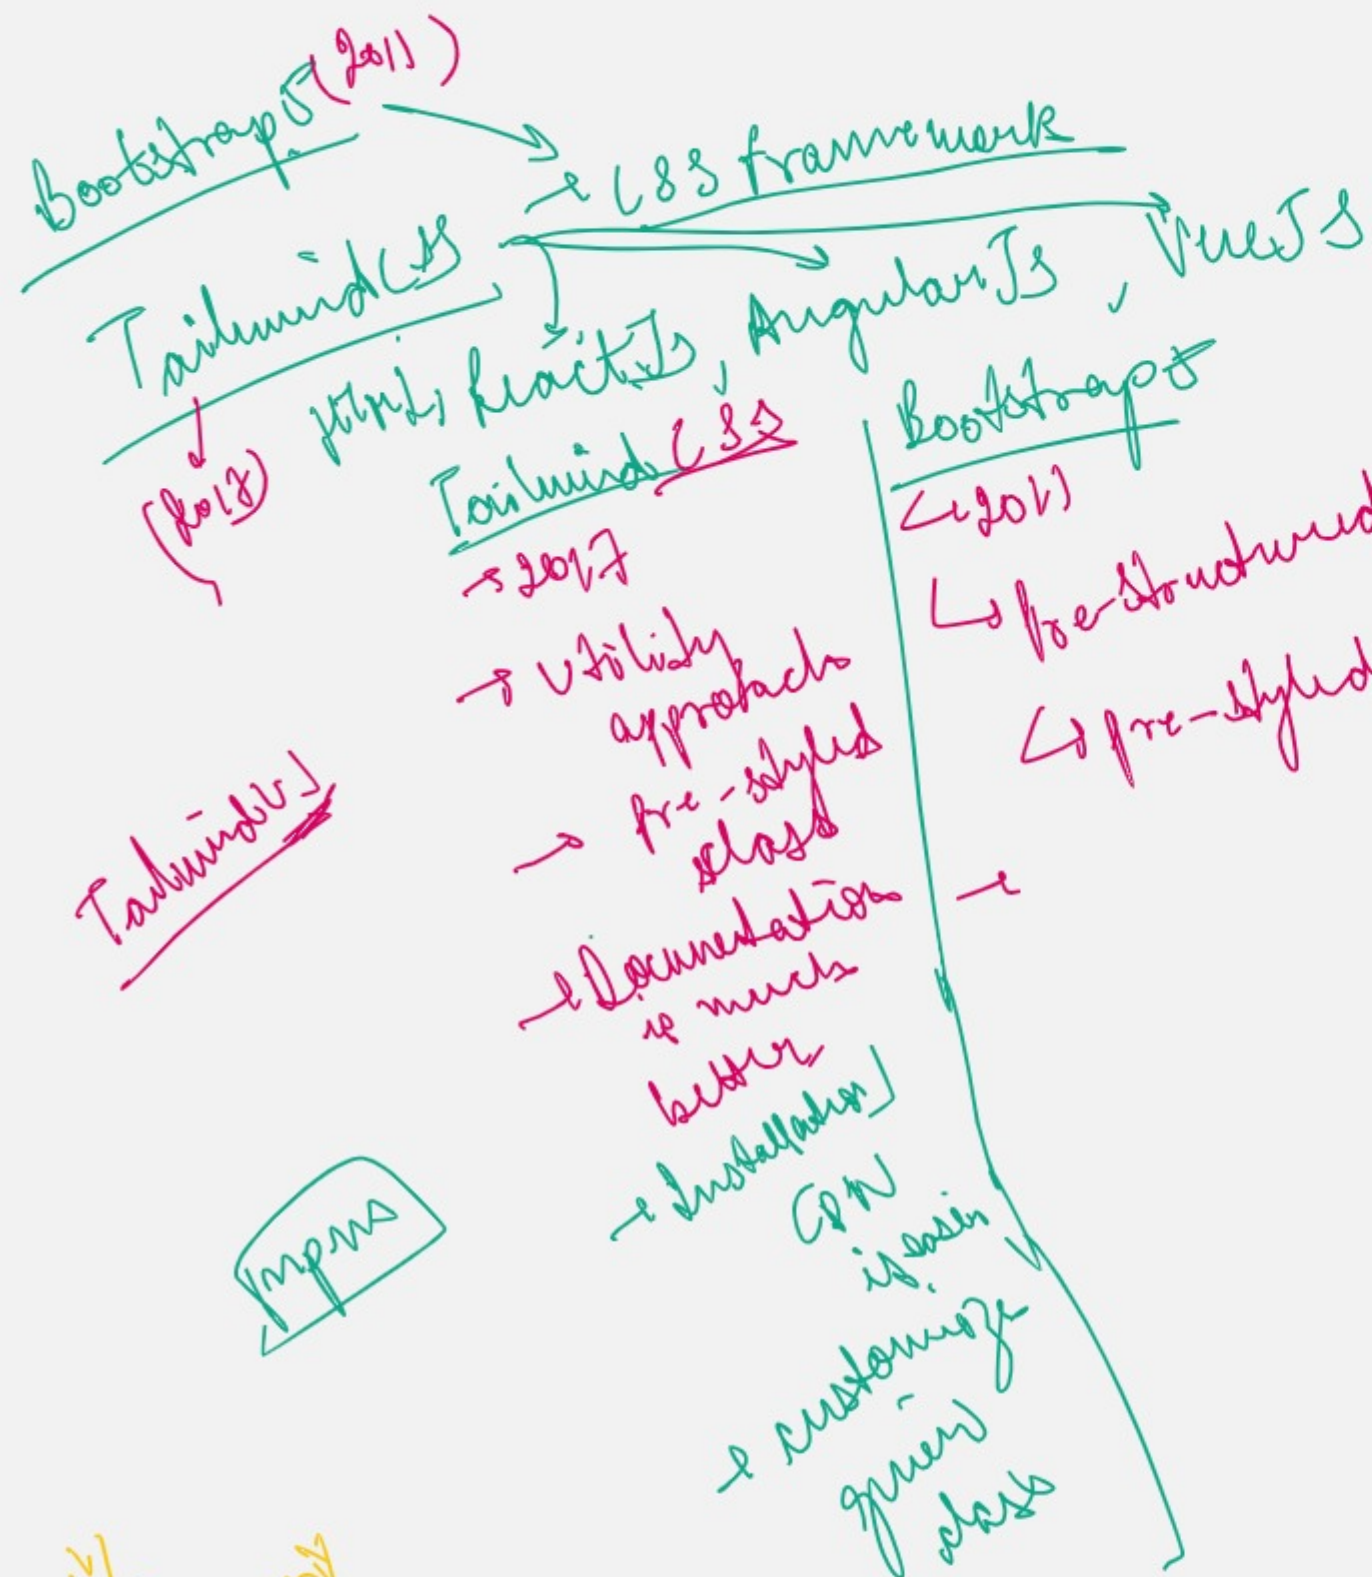 Bootstrap5 (2011)
→ CSS framework
TailwindCSS
(2017)
HTML, ReactJs, AngularJs, VueJS
Tailwind CSS
→ 2017
→ Utility
approach
→ Pre-styled
class
→ Documentation
is much
better
→ Installation
CDN
is easier
→ customize
given
class
Bootstrap5
↳ 2011
↳ Pre-structured
↳ pre-styled